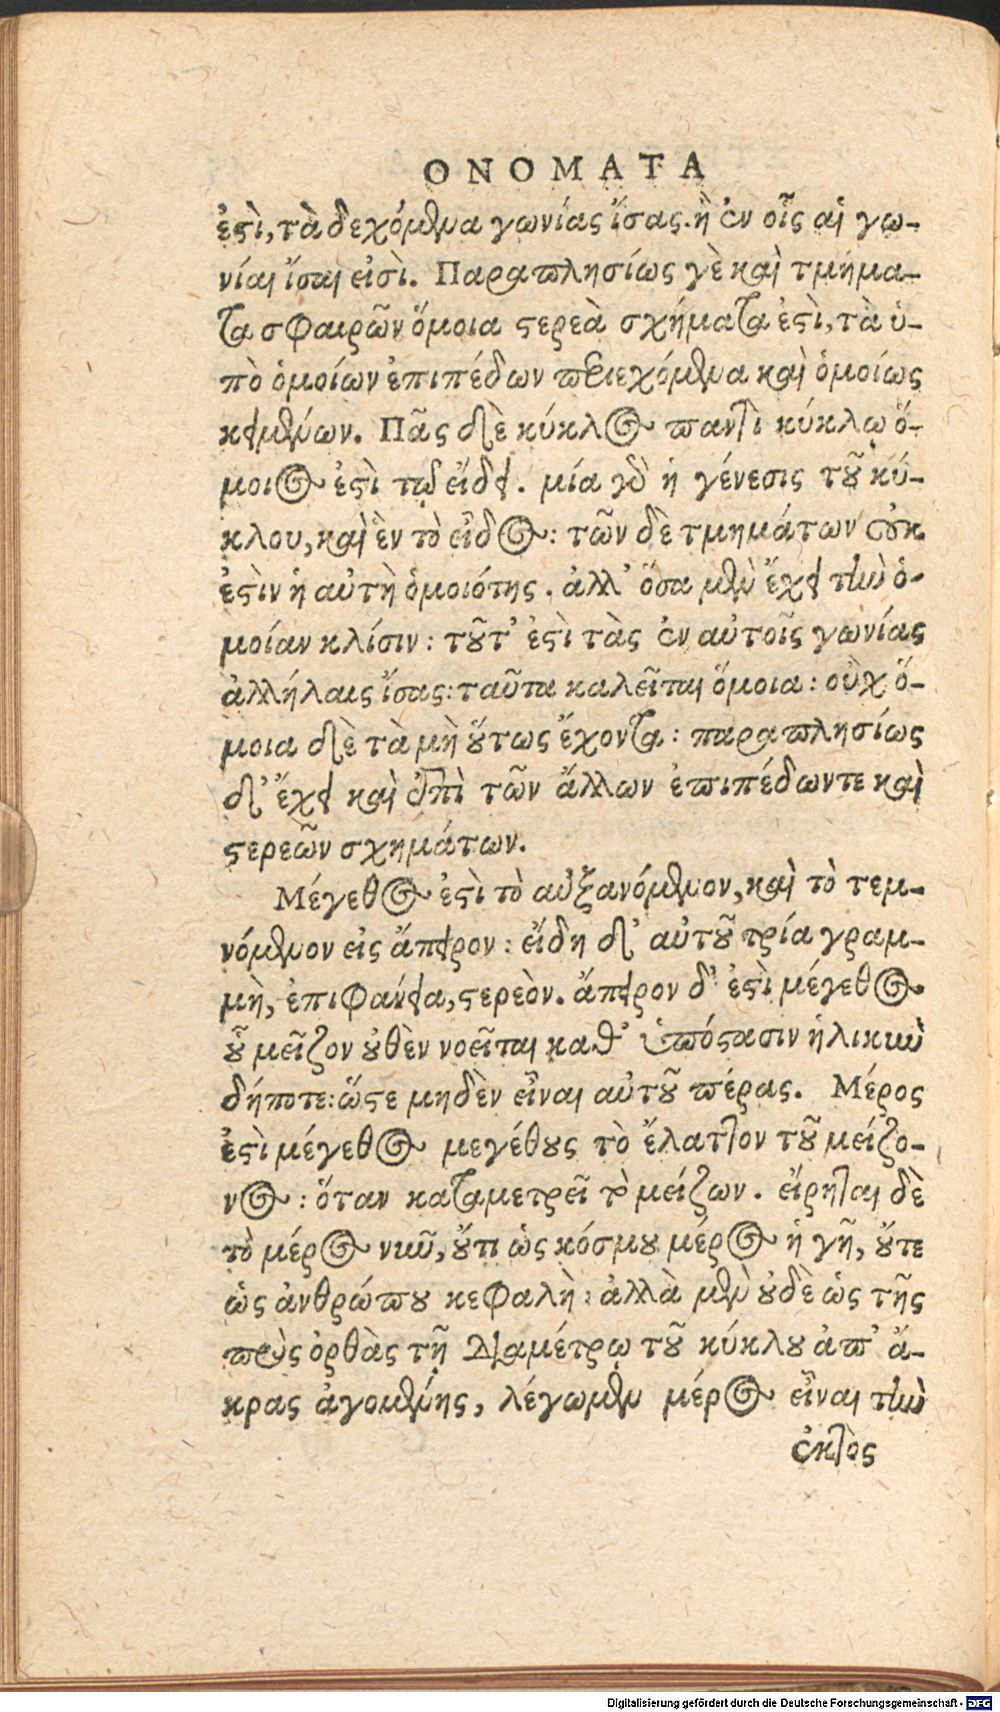 ΟΝΟΜΑΤΑ
ἐστὶ, τὰ δεχόμενα γωνίας ἴσας. ἢ ἐν οἷς αἱ γω-
νίαι ἴσαι εἰσὶ. Παραπλησίως γὲ καὶ τμήμα-
τα σφαιρῶν ὅμοια στερεὰ σχήματα ἐστὶ, τὰ ὑ-
πὸ ὁμοίων ἐπιπέδων περιεχόμενα καὶ ὁμοίως
κειμένων. Πᾶς δὲ κύκλος παντὶ κύκλῳ ὅ-
μοιος ἐστὶ τῷ εἴδει. μία γὰρ ἡ γένεσις τοῦ κύ-
κλου, καὶ ἓν τὸ εἶδος: τῶν δὲ τμημάτων οὐκ
ἐστὶν ἡ αὐτὴ ὁμοιότης. ἀλλ' ὅσα μὲν ἔχει τὴν ὁ-
μοίαν κλίσιν: τοῦτ' ἐστὶ τὰς ἐν αὐτοῖς γωνίας
ἀλλήλαις ἴσας: ταῦτα καλεῖται ὅμοια: οὐχ ὅ-
μοια δὲ τὰ μὴ οὕτως ἔχοντα: παραπλησίως
δ' ἔχει καὶ ἐπὶ τῶν ἄλλων ἐπιπέδωντε καὶ
στερεῶν σχημάτων.
Μέγεθος ἐστὶ τὸ αὐξανόμενον, καὶ τὸ τεμ-
νόμενον εἰς ἄπειρον: εἴδη δ' αὐτοῦ τρία γραμ-
μὴ, ἐπιφάνεια, στερεὸν. ἄπειρον δ' ἐστὶ μέγεθος
οὗ μεῖζον οὐθὲν νοεῖται καθ' ὑπόστασιν ἡλικην
δήποτε: ὥστε μηδὲν εἶναι αὐτοῦ πέρας. Μέρος
ἐστὶ μέγεθος μεγέθους τὸ ἔλαττον τοῦ μείζο-
νος: ὅταν καταμετρεῖ τὸ μείζων. εἴρηται δὲ
τὸ μέρος νῦν, οὔτι ὡς κόσμου μέρος ἡ γῆ, οὔτε
ὡς ἀνθρώπου κεφαλὴ: ἀλλὰ μὲν οὐδὲ ὡς τῆς
πρὸς ὀρθὰς τῇ διαμέτρῳ τοῦ κύκλου ἀπ' ἄ-
κρας ἀγομένης, λέγωμεν μέρος εἶναι τὴν
ἐκτὸς
Digitalisierung gefördert durch die Deutsche Forschungsgemeinschaft - DFG